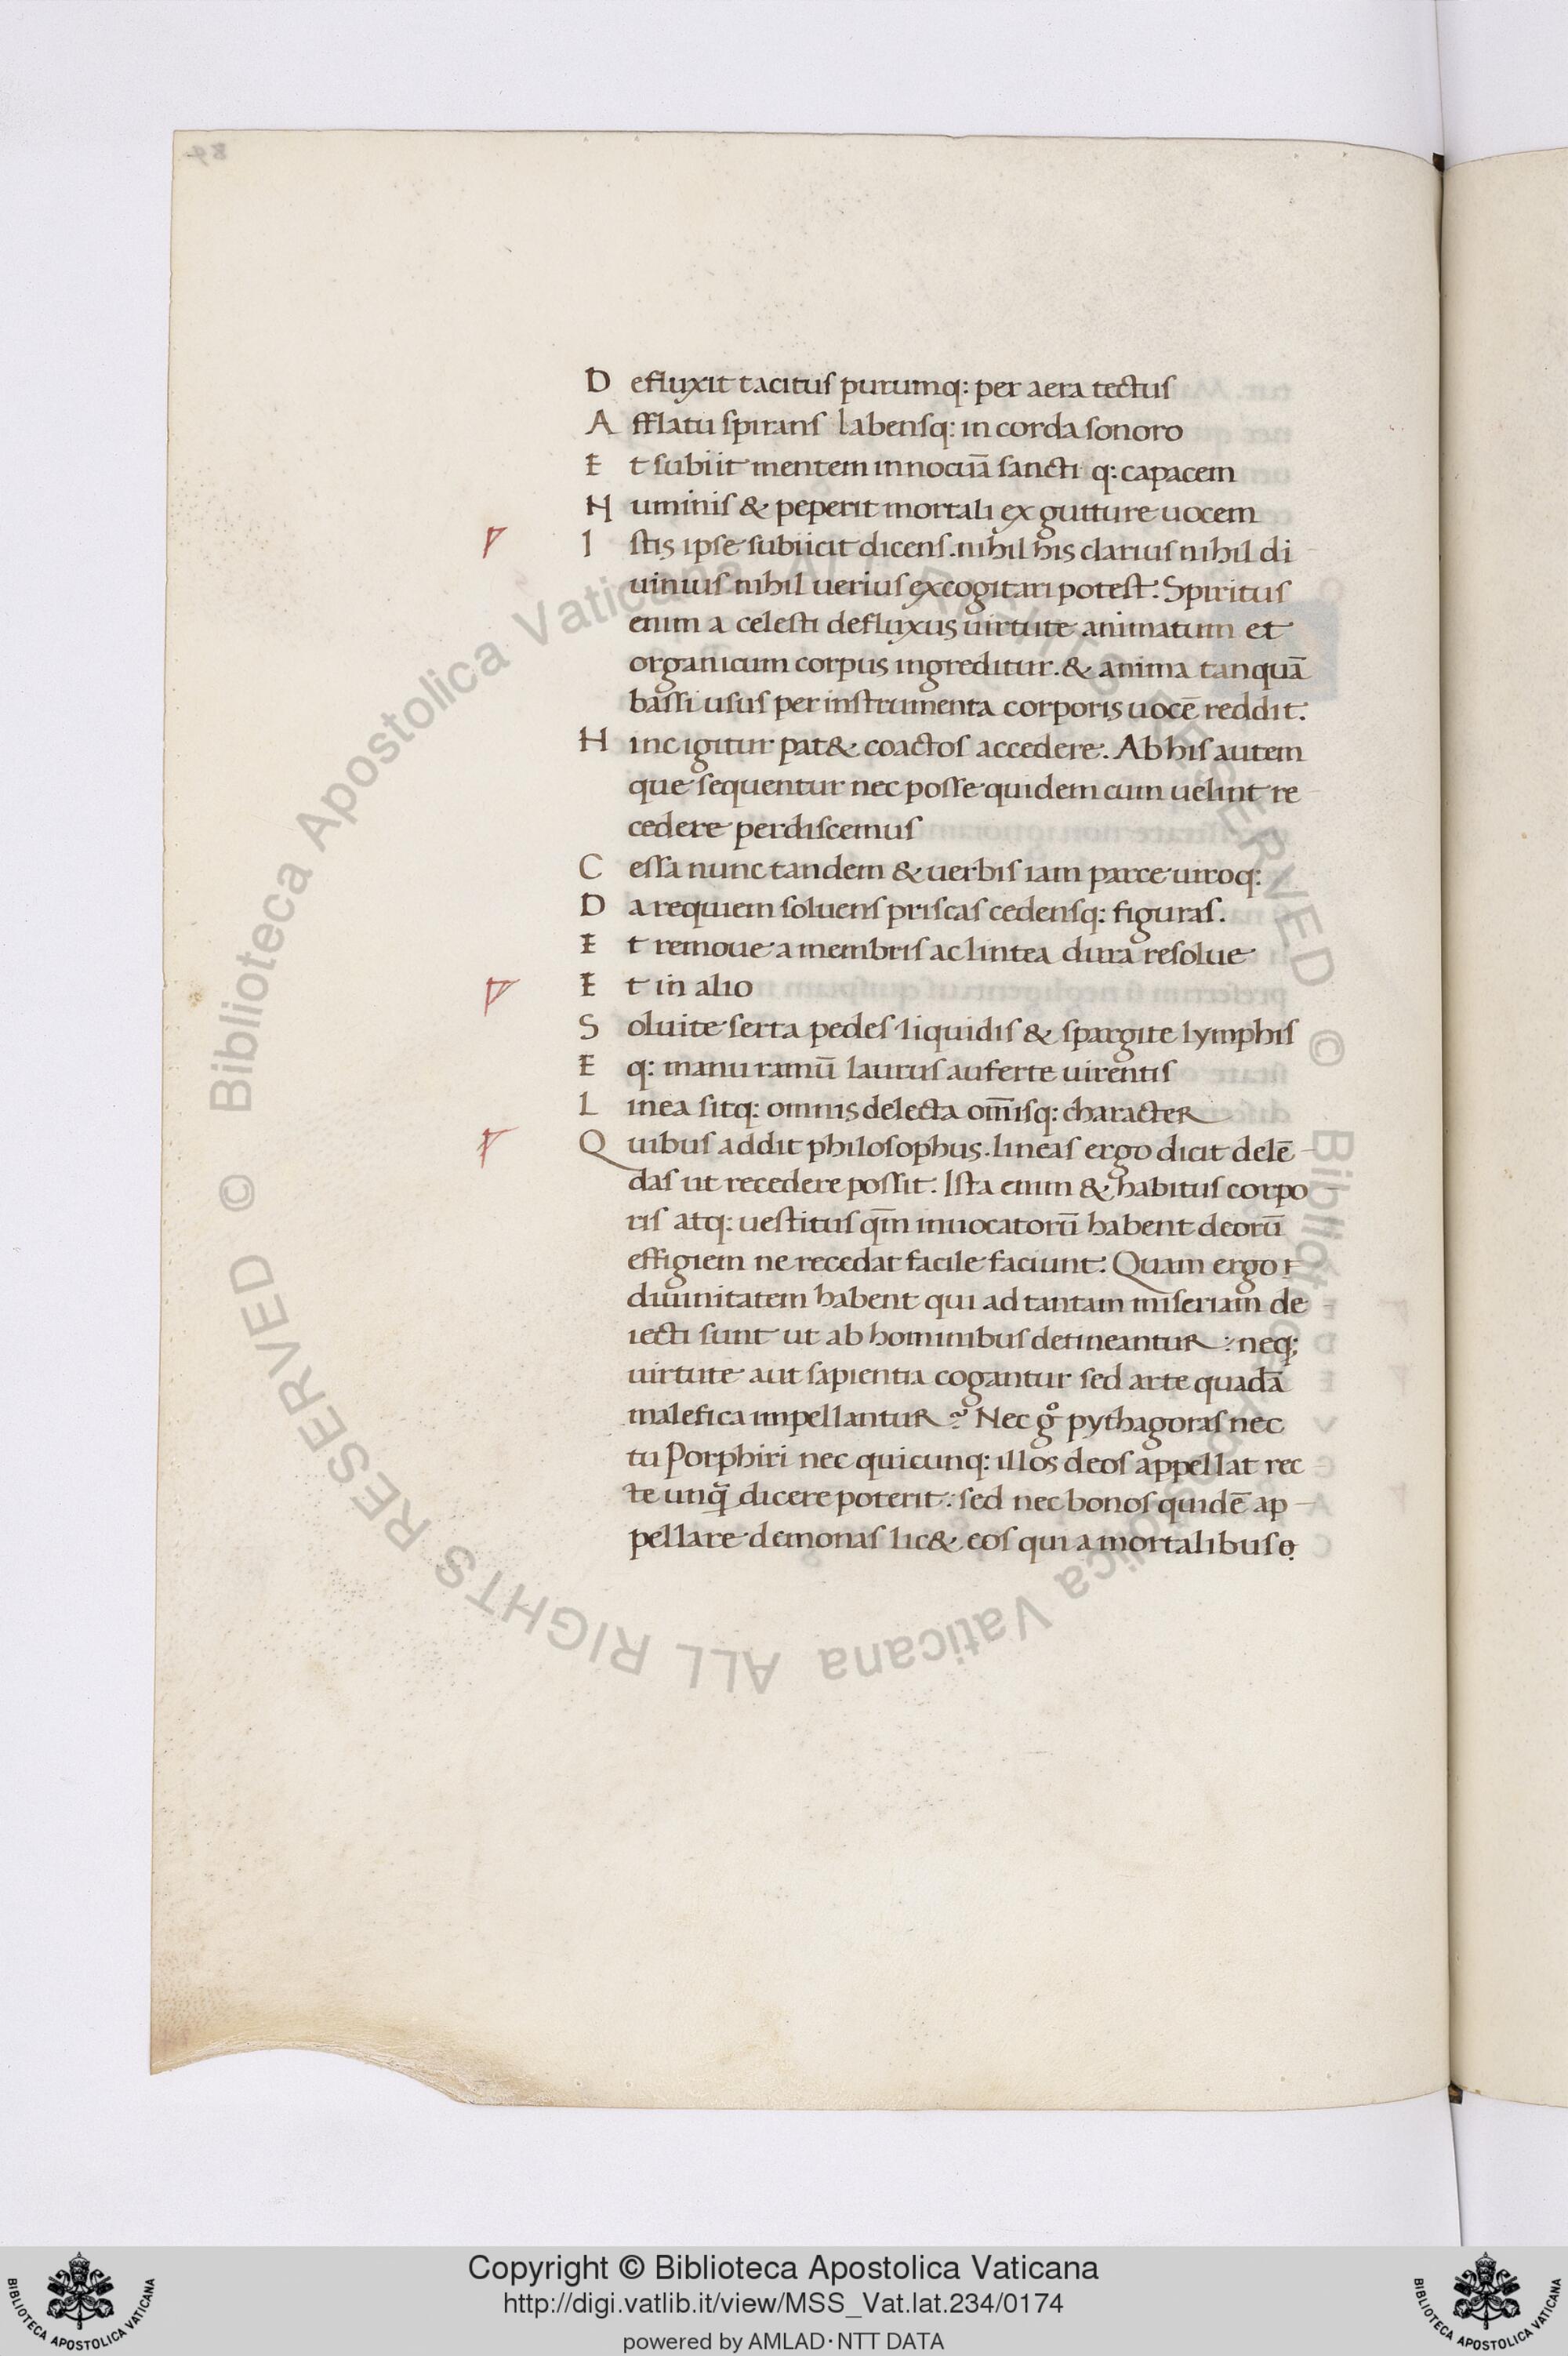 Defluxit tacitus purumq: per aera tectus
Afflatu spirans labensq: in corda sonoro
Et subiit mentem innocuā sancti q: capacem
Huminis & peperit mortali ex gutture uocem
Istis ipse subiicit dicens. nihil his clarius nihil di
uinius nihil uerius excogitari potest: Spiritus
enim a celesti defluxus uirtute animatum et
organicum corpus ingreditur. & anima tanquā
bassi usus per instrumenta corporis uocē reddit:
Hinc igitur pat& coactos accedere: Ab his autem
que sequentur nec posse quidem cum uelint re
cedere perdiscemus
Cessa nunc tandem & uerbis iam parce uiroq:
Da requiem soluens priscas cedensq: figuras.
Et remoue a membris ac lintea dura resolue
Et in alio
Soluite serta pedes liquidis & spargite lymphis
Eq: manu ramū laurus auferte uirentis
Linea sitq: omnis delecta om̄isq: character
Quibus addit philosophus. lineas ergo dicit delē
das ut recedere possit: Ista enim & habitus corpo
ris atq: uestitus qm̄ inuocatorū habent deorū
effigiem ne recedat facile faciunt: Quam ergo
diuinitatem habent qui ad tantam miseriam de
iecti sunt ut ab hominibus detineantur: neq;
uirtute aut sapientia cogantur sed arte quadā
malefica impellantur? Nec gº pythagoras nec
tu Porphiri nec quicunq: illos deos appellat rec
te unq̄ dicere poterit: sed nec bonos quidē ap
pellare demonas lic& eos qui a mortalibus
84
Biblioteca Apostolica Vaticana ALL RIGHTS RESERVED ©
Biblioteca Apostolica Vaticana ALL RIGHTS RESERVED ©
Copyright © Biblioteca Apostolica Vaticana
http://digi.vatlib.it/view/MSS_Vat.lat.234/0174
powered by AMLAD·NTT DATA
BIBLIOTECA APOSTOLICA VATICANA
BIBLIOTECA APOSTOLICA VATICANA